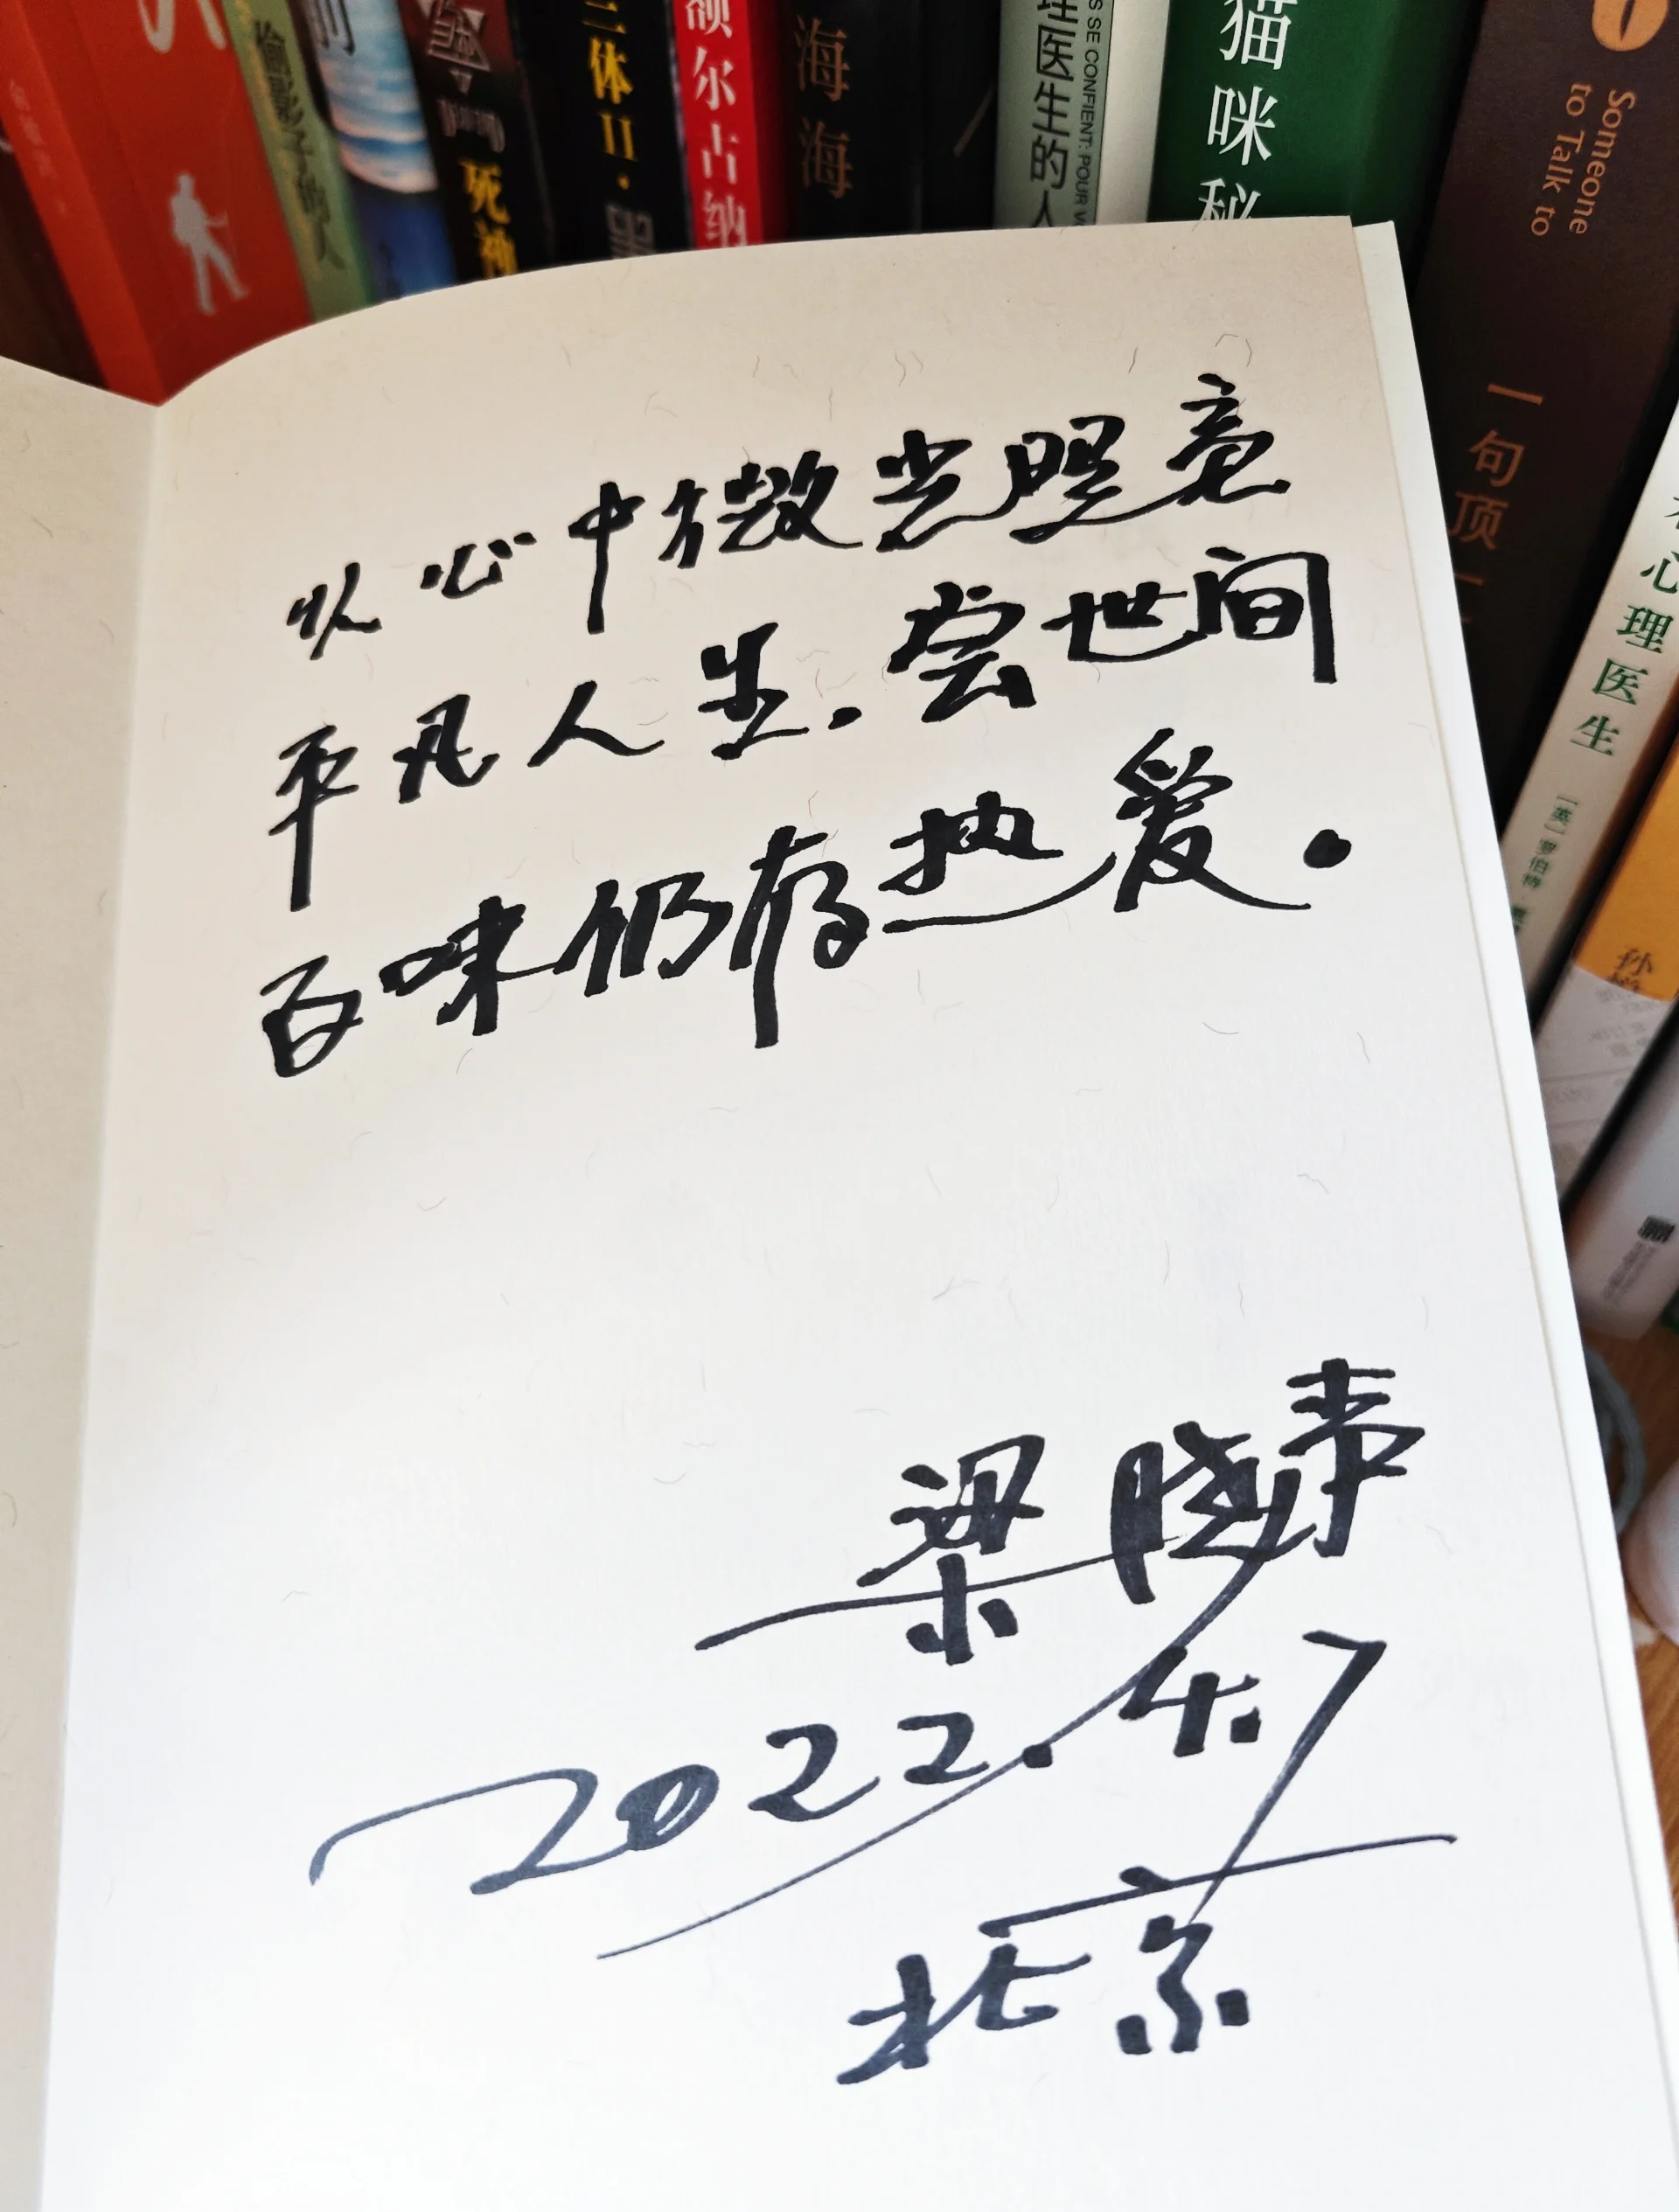 偷影子的人
死神
三体II·黑
额尔古纳
海海
理医生的人
S SE CONFIENT: POUR V
猫咪秘
Someone
to Talk to
一句顶一
心理医生
[英]罗伯特
孙
以心中微光照亮
平凡人生.尝世间
百味仍存热爱.
梁晓声
2022.4.7
北京